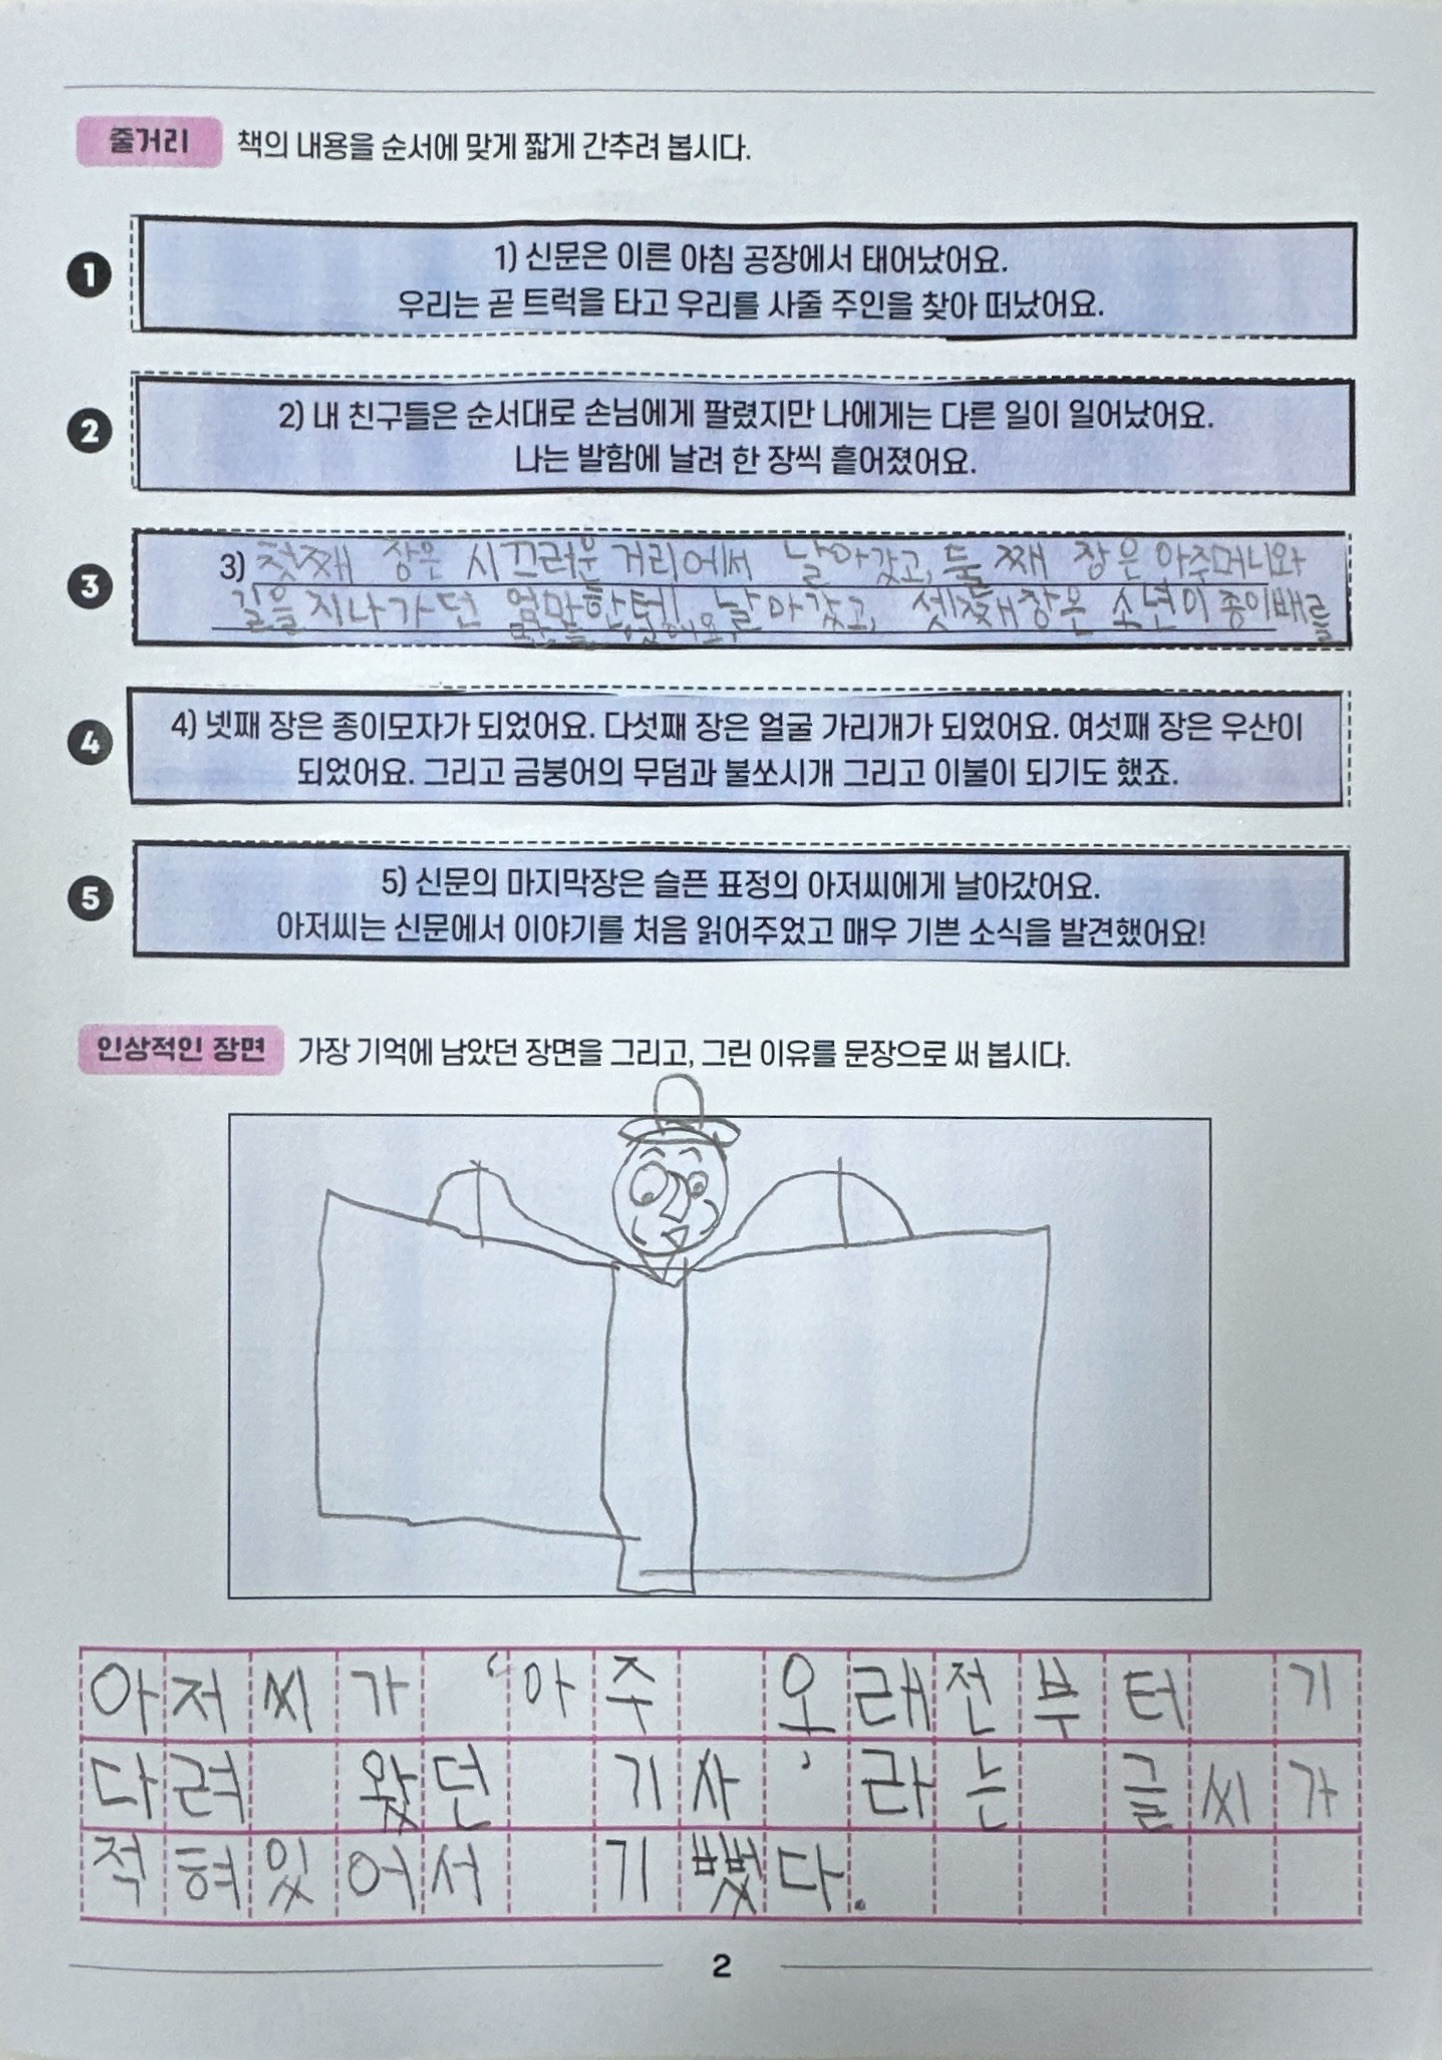 줄거리 책의 내용을 순서에 맞게 짧게 간추려 봅시다.
1 1) 신문은 이른 아침 공장에서 태어났어요.
우리는 곧 트럭을 타고 우리를 사줄 주인을 찾아 떠났어요.
2 2) 내 친구들은 순서대로 손님에게 팔렸지만 나에게는 다른 일이 일어났어요.
나는 발함에 날려 한 장씩 흩어졌어요.
3 3) 첫째 장은 시끄러운 거리에써 날아갔고, 둘째 장은 아주머니와
길을 지나가던 꼬마한테 날아갔고, 셋째장은 소년이 종이배를
4 4) 넷째 장은 종이모자가 되었어요. 다섯째 장은 얼굴 가리개가 되었어요. 여섯째 장은 우산이
되었어요. 그리고 금붕어의 무덤과 불쏘시개 그리고 이불이 되기도 했죠.
5 5) 신문의 마지막장은 슬픈 표정의 아저씨에게 날아갔어요.
아저씨는 신문에서 이야기를 처음 읽어주었고 매우 기쁜 소식을 발견했어요!
인상적인 장면 가장 기억에 남았던 장면을 그리고, 그린 이유를 문장으로 써 봅시다.
아저씨가 “아주 오래전부터 기
다려 왔던 기사’라는 글씨가
적혀있어서 기뻤다.
2